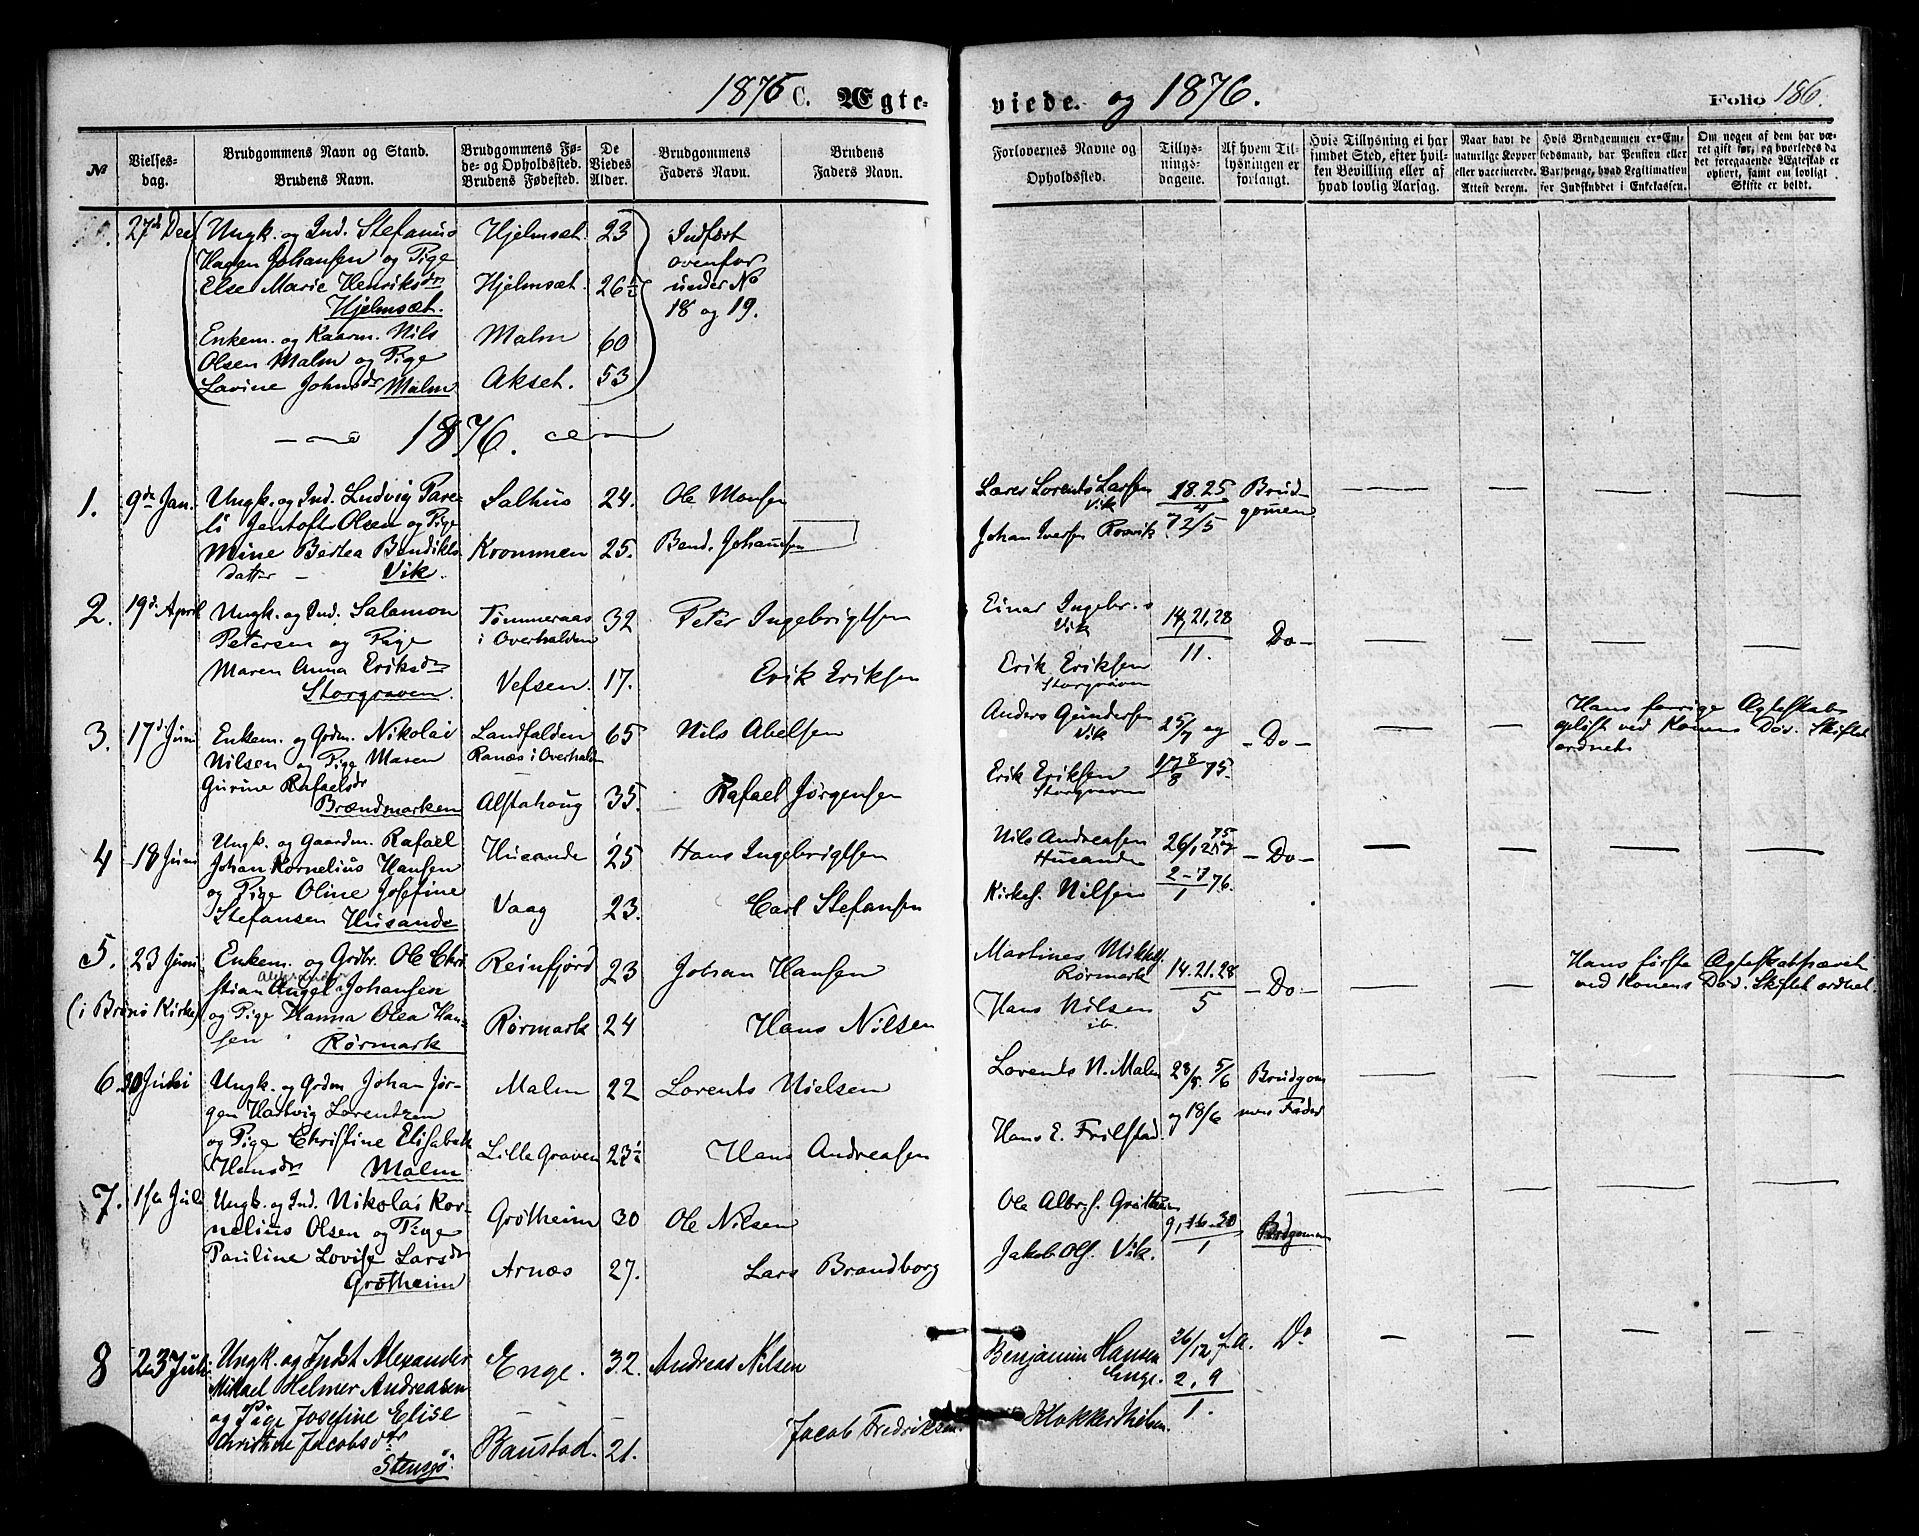 1875 C. Ægte-
viede. og 1876.
Folio 186.
No
Vielses-
dag.
Brudgommens Navn og Stand.
Brudens Navn.
Brudgommens Fø-
de- og Opholdssted.
Brudens Fødested.
De
Viedes
Alder.
Brudgommens
Faders Navn.
Brudens
Faders Navn.
Forlovernes Navne og
Opholdssted.
Tillys-
nings-
dagene.
Af hvem Til-
lysningen er
forlangt.
Hvis Tillysning ei har
fundet Sted, efter hvil-
ken Bevilling eller af
hvad lovlig Aarsag.
Naar havt de
naturlige Kopper
eller vaccinerede.
Attest derom.
Hvis Brudgommen er Em-
bedsmand, har Pension eller
Vartpenge, hvad Legitimation
for Indskuddet i Enkekassen.
Om nogen af dem har væ-
ret gift før, og hvorledes da
det foregaaende Ægteskab er
ophørt, samt om lovligt
Skifte er holdt.
27de Dec Ungk. og Ind. Stefanus Hjelmsæt. 23 Indført
Hagen Johansen og Pige ovenfor
Else Marie Henriksdr Hjelmsæt. 26½ under No
Hjelmsæt. 18 og 19.
Enkem. og Kaarm. Nils Malm 60
Olsen Malm og Pige
Lavine Johnsdr Malm Akset. 53
1876.
1. 9de Jan. Ungk. og Ind. Ludvig Pare- Salhus 24. Ole Monsen Lærer Lorents Larsen 18. 25 Brud-
li Jentoft Olsen og Pige Vik gomen
Mine Bertea Bendikts- Krommen 25. Bend. Johansen Johan Iversen Rørvik 72/5
datter - Vik.
2. 19de April Ungk. og Ind. Salamon Tømmeraas 32 Peter Ingebrigtsen Einar Ingebr.s 14, 21, 28 Do -
Petersen og Pige i Overhalden Vik 11.
Maren Anna Eriksdr Vefsen. 17. Erik Eriksen Erik Eriksen
Storgraven. Storgraven
3. 17de Juni Enkem. og Grdm. Nikolai Landfalden 65 Nils Abelsen Anders Gundersen 25/7 og - Do - Hans forrige Ægteskab
Nilsen og Pige Maren Ranæs i Overhald. Vik opløst ved Konens Død. Skiftet
Gurine Rafaelsdr Erik Eriksen 75. ordnet
Brændmarken Alstahoug 35. Rafael Jørgensen Storgraven
4 18 Juni Ungk. og Gaardm. Rafael Husande 25 Hans Ingebrigtsen Nils Andreasen 26/12 75 - Do -
Johan Kornelius Hansen Husande
og Pige Oline Josefine Vaag 23. Carl Stefansen Kirkes. Nilsen 2-7/1 76.
Stefansen Husande
5. 23 Juni Enkem. og Grdbr. Ole Chri Reinfjord 23 Johan Hansen Martines Mikkels. 14. 21. 28 - Do - Hans første Ægteskab hævet
stian Angel Johansen Rørmark 5 ved Konens Død. Skiftet ordnet.
(i Brønø Kirke) og Pige Hanna Olea Han- Rørmark 24 Hans Nilsen Hans Nilsen
sen Rørmark ib.
6. 30 Juli Ungk. og Grdm Johan Jør- Malm 22 Lorents Nielsen Lorents N. Malm 28/5. 5/6 Brudgom
gen Hartvig Lorentzen og 18/6 mens Fader
og Pige Christine Elisabeth Lille Graven 23½ Hans Andreasen Hans E. Frilstad.
Hansdr Malm
7. 1ste Juli Ungk. og Ind. Nikolai Kor- Grøtheim 30 Ole Nilsen Ole Albr.s. Grøtheim 9, 16-30
nelius Olsen og Pige 1 Brdgomen
Pauline Lovise Larsdr Arnæs 27. Lars Brandborg Jakob Ols. Vik.
Grøtheim
8 23 Juli Ungk. og Indst Alexander Enge. 32. Andreas Nilsen Benjamin Hansen 26/12 f.a. Do
Mikael Helmer Andreasen Enge. 2, 9
og Pige Josefine Elise 1.
Christine Jacobsdtr Baustad. 21. Jacob Fredriksen. Klokker Nilsen.
Stensø.